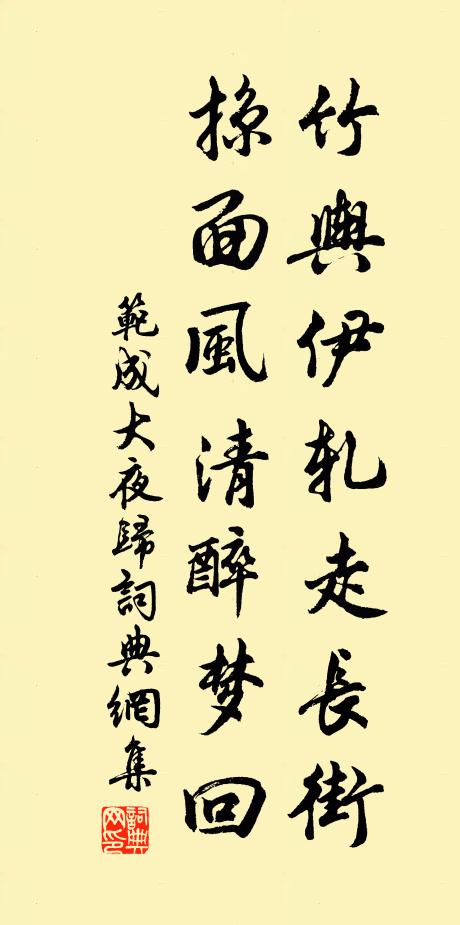 竹輿伊軋走長街
掠面風清醉梦回
範成大夜歸詞典網集
詞典網印